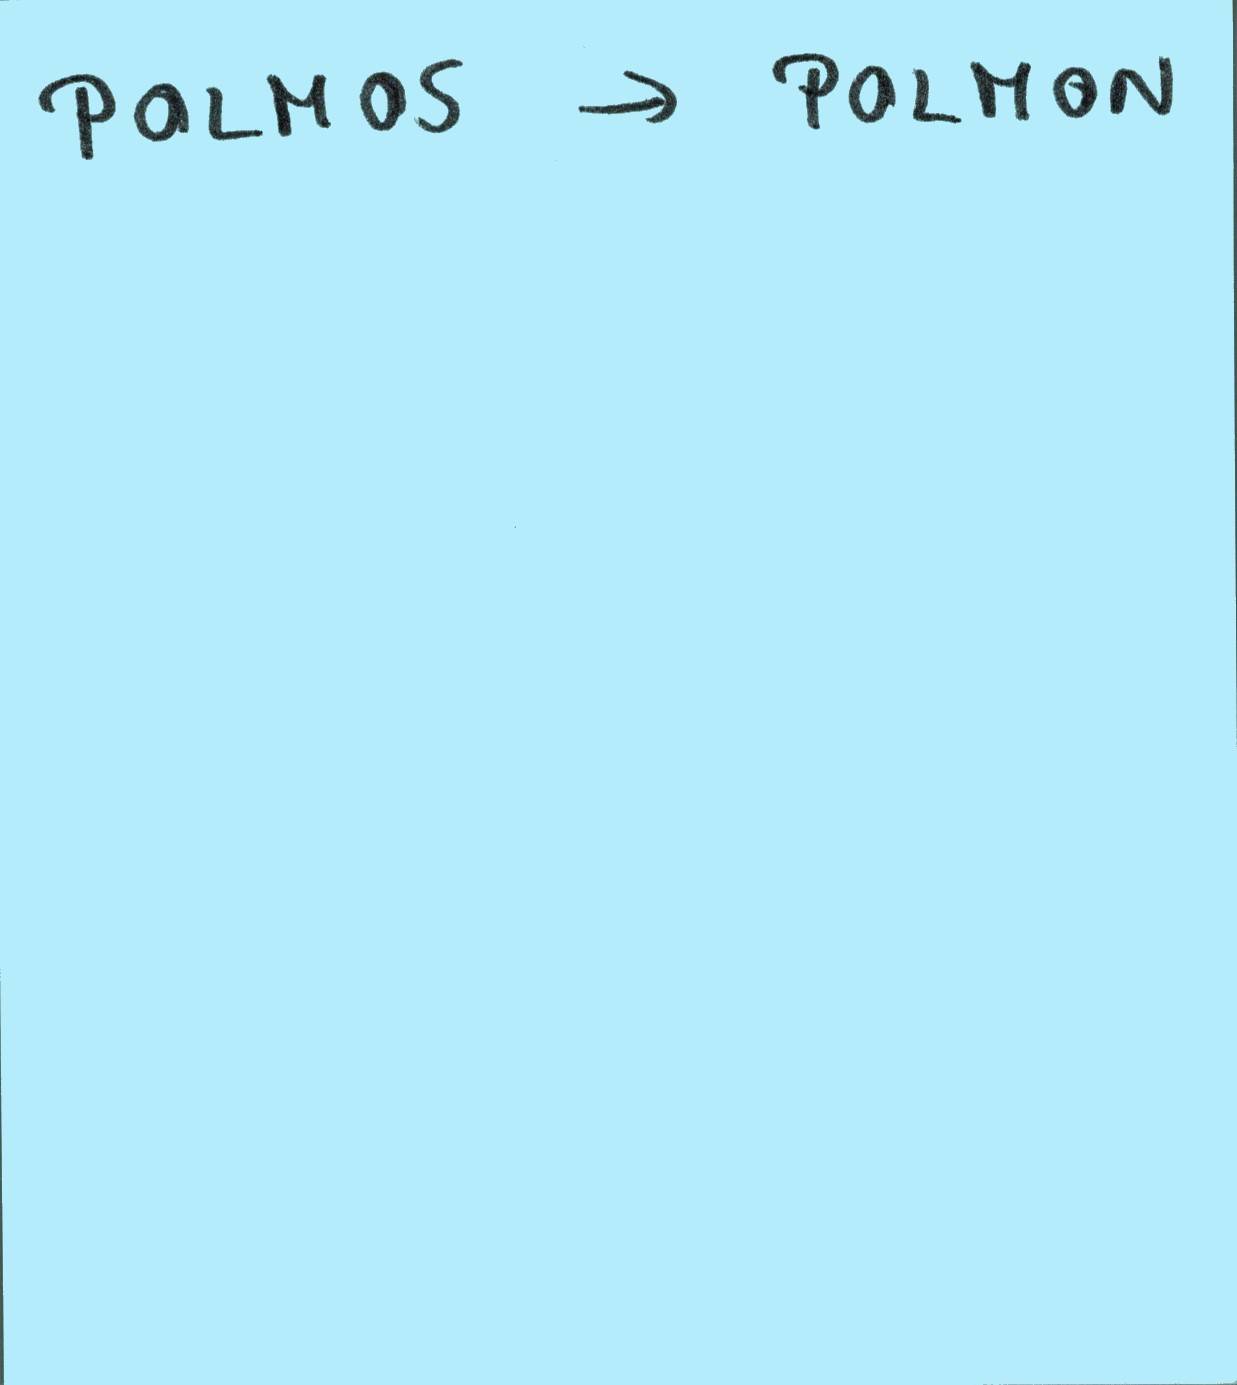 POLMOS → POLMON